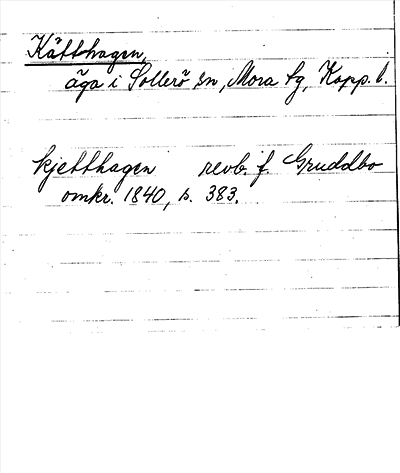 Kätthagen,
äga i Sollerö sn, Mora tg, Kopp. l.
Kjetthagen revb. f. Gruddbo
omkr. 1840, s. 383.